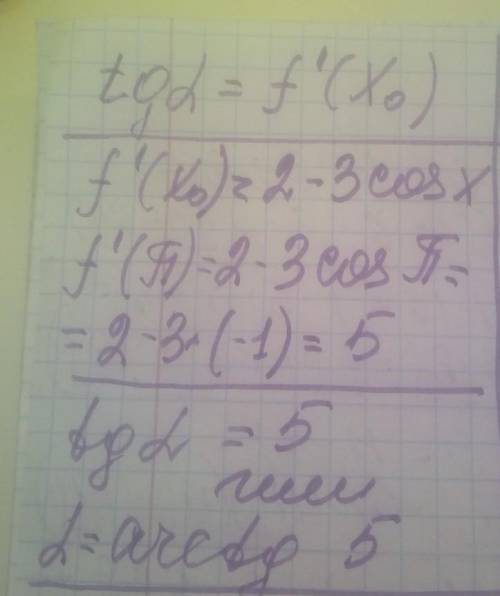 tgα = f'(x₀)
f'(x₀) = 2 - 3 cos x
f'(π) = 2 - 3 cos π =
= 2 - 3 · (-1) = 5
tgα = 5
или
α = arctg 5